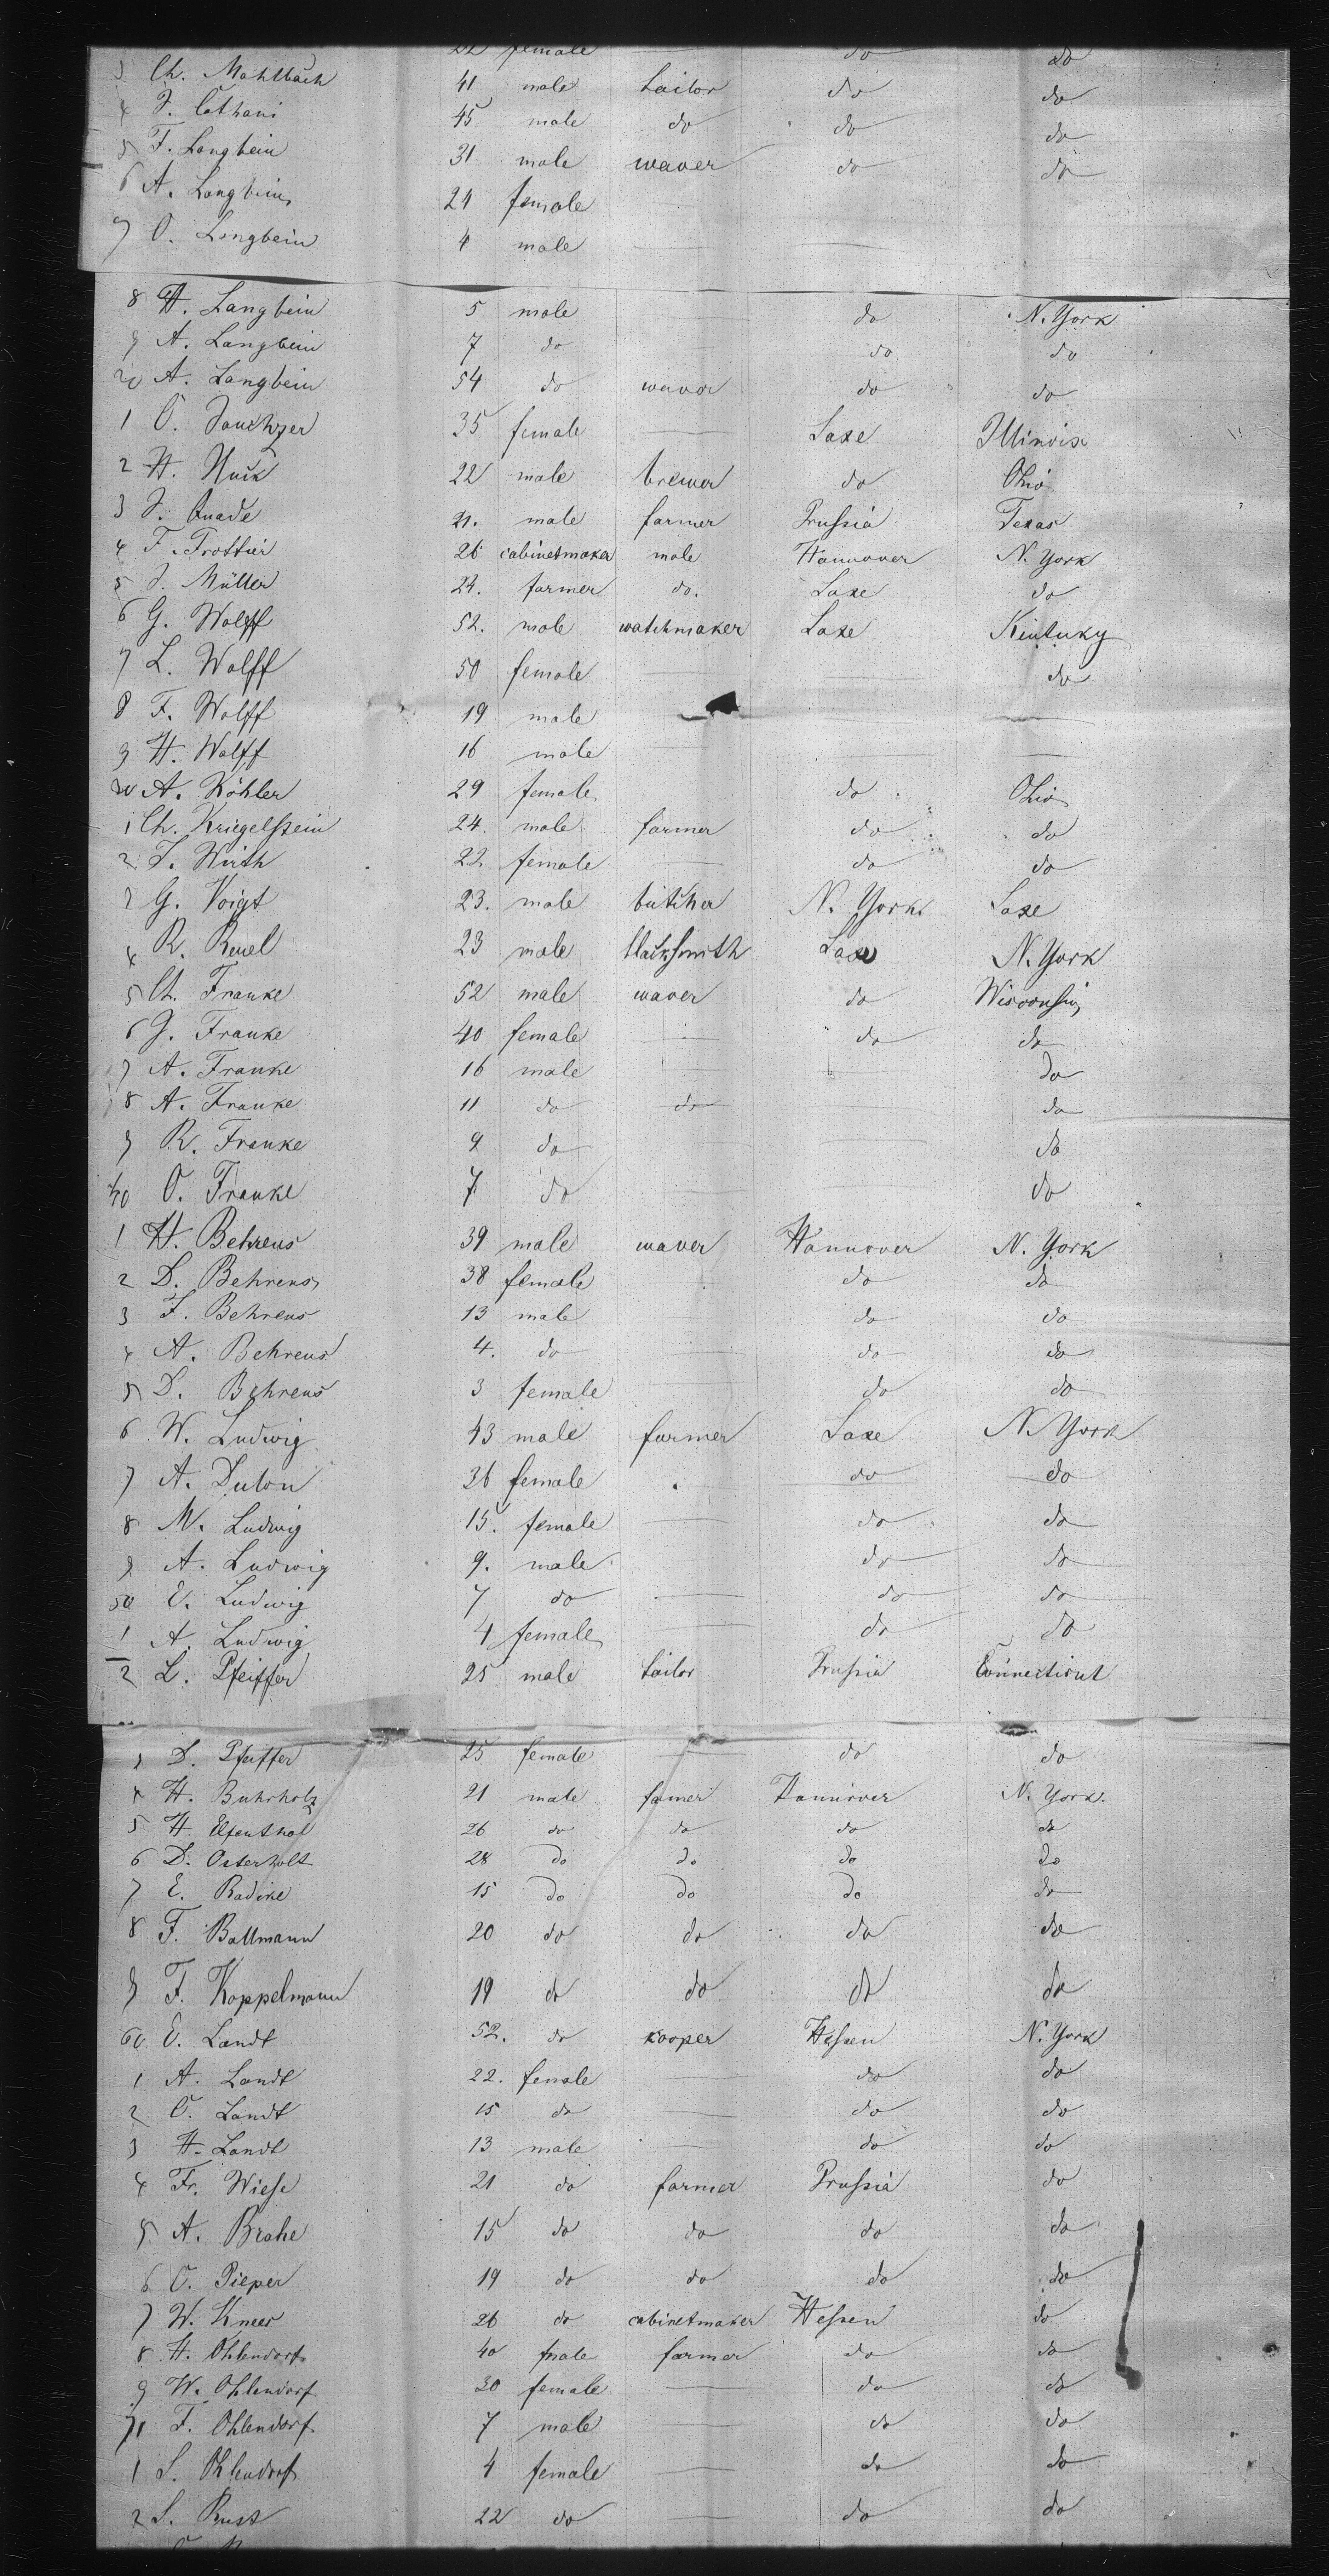 22 female do do
3 Ch. Mahlbach 41 male tailor do do
4 J. Cathani 45 male do do do
5 F. Langbein 31 male waver do do
6 A. Langbein 24 female
7 O. Langbein 4 male
8 H. Langbein 5 male do N. York
9 A. Langbein 7 do do do
20 A. Langbein 54 do wavor do do
1 O. 35 female Saxe Illinois
2 H. Huck 22 male brewer do Ohio
3 J. Quade 21. male farmer Prussia Texas
4 F. Trottier 26 cabinetmaker male Hannover N. York
5 J. Müller 24. farmer do. Saxe do
6 G. Wolff 52. male watchmaker Saxe Kintuky
7 L. Wolff 50 female do
8 F. Wolff 19 male
9 H. Wolff 16 male
30 A. Köhler 29 female do Ohio
1 Ch. Kriegelstein 24. male farmer do do
2 F. Wirth 22 female do do
3 G. Voigt 23. male butcher N. York Saxe
4 R. Reuel 23 male blacksmith Saxe N. York
5 Ch. Franke 52 male waver do Wisconsin
6 G. Franke 40 female do do
7 A. Franke 16 male do
8 A. Franke 11 do do do
9 R. Franke 9 do do
40 O. Franke 7 do do
1 H. Behrens 39 male waver Hannover N. York
2 D. Behrens 38 female do do
3 F. Behrens 13 male do do
4 A. Behrens 4. do do do
5 D. Behrens 3 female do do
6 W. Ludwig 43 male farmer Saxe N. York
7 A. Dulon 36 female do do
8 M. Ludwig 15. female do do
9 A. Ludwig 9. male do do
50 E. Ludwig 7 do do do
1 A. Ludwig 4 female do do
2 L. Pfeiffer 25 male tailor Prussia Connecticut
3 D. Pfeiffer 25 female do do
4 H. Buhrholz 21 male famer Hannover N. York.
5 H. Elfenthal 26 do do do do
6 D. Osterholt 28 do do do do
7 E. Radike 15 do do do do
8 F. Ballmann 20 do do do do
9 F. Koppelmann 19 do do do do
60 E. Landt 52. do kooper Hessen N. York
1 A. Landt 22. female do do
2 O. Landt 15 do do do
3 H. Landt 13 male do do
4 Fr. Wiese 21 do farmer Prussia do
5 A. Brahe 15 do do do do
6 O. Pieper 19 do do do do
7 W. Kneer 26 do cabinetmaker Hessen do
8 H. Ohlendorf 40 male farmer do do
9 W. Ohlendorf 30 female do do
71 F. Ohlendorf 7 male do do
1 S. Ohlendorf 4 female do do
2 S. Rust 22 do do do